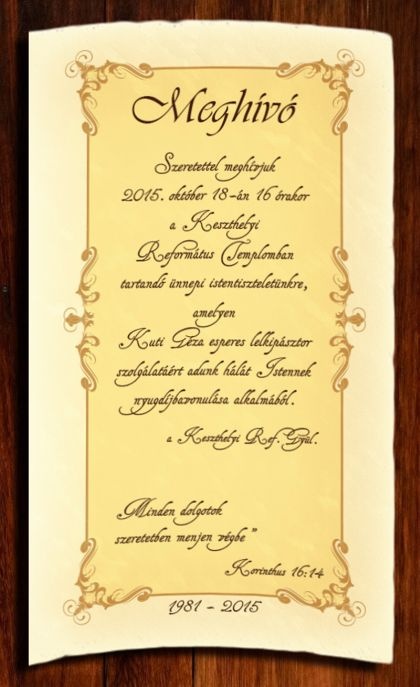 Meghívó
Szeretettel meghívjuk
2015. október 18-án 16 órakor
a Keszthelyi
Református Templomban
tartandó ünnepi istentiszteletünkre,
amelyen
Kuti Géza esperes lelkipásztor
szolgálatáért adunk hálát Istennek
nyugdíjbavonulása alkalmából.
a Keszthelyi Ref. Gyül.
Minden dolgotok
szeretetben menjen végbe”
Korinthus 16:14
1981 - 2015